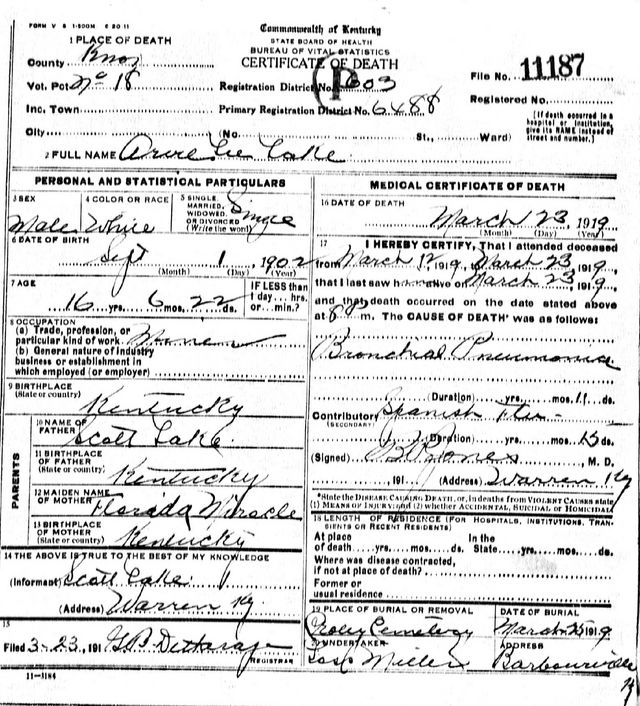 FORM V S 1-500M 6 20 11
Commonwealth of Kentucky
STATE BOARD OF HEALTH
BUREAU OF VITAL STATISTICS
CERTIFICATE OF DEATH
1 PLACE OF DEATH
County Knox
Vot. Pct No 18
Inc. Town
City
Registration District No. 603
Primary Registration District No. 6488
(No. St., Ward)
File No. 11187
Registered No.
[If death occurred in a hospital or institution, give its NAME instead of street and number.]
2 FULL NAME Lake
PERSONAL AND STATISTICAL PARTICULARS
3 SEX Male
4 COLOR OR RACE White
5 SINGLE, MARRIED, WIDOWED, OR DIVORCED (Write the word) Single
6 DATE OF BIRTH
Sept 1, 1902
(Month) (Day) (Year)
7 AGE
16 yrs. 6 mos. 22 ds.
IF LESS than 1 day... hrs. or min.?
8 OCCUPATION
(a) Trade, profession, or particular kind of work
(b) General nature of industry business or establishment in which employed (or employer)
9 BIRTHPLACE
(State or country) Kentucky
PARENTS
10 NAME OF FATHER Scott Lake
11 BIRTHPLACE OF FATHER
(State or country) Kentucky
12 MAIDEN NAME OF MOTHER Florada Miracle
13 BIRTHPLACE OF MOTHER
(State or country) Kentucky
14 THE ABOVE IS TRUE TO THE BEST OF MY KNOWLEDGE
(Informant) Scott Lake
(Address) Warren Ky
15
Filed 3-23, 191
REGISTRAR
11-3184
MEDICAL CERTIFICATE OF DEATH
16 DATE OF DEATH
March 23, 1919
(Month) (Day) (Year)
17 I HEREBY CERTIFY, That I attended deceased
from March 12, 1919, to March 23, 1919,
that I last saw h alive on March 23, 1919,
and that death occurred on the date stated above
at 8 P m. The CAUSE OF DEATH* was as follows:
Bronchial Pneumonia
(Duration) yrs. mos. 11 ds.
Contributory Spanish Flu
(SECONDARY)
(Duration) yrs. mos. 15 ds.
(Signed) Jones, M. D.
, 191 (Address) Warren Ky
*State the DISEASE CAUSING DEATH, or, in deaths from VIOLENT CAUSES state (1) MEANS OF INJURY; and (2) whether ACCIDENTAL, SUICIDAL or HOMICIDAL
18 LENGTH OF RESIDENCE (FOR HOSPITALS, INSTITUTIONS, TRANSIENTS OR RECENT RESIDENTS)
At place of death yrs. mos. ds. In the State yrs. mos. ds.
Where was disease contracted, if not at place of death?
Former or usual residence
19 PLACE OF BURIAL OR REMOVAL
Cemetery
DATE OF BURIAL
March 25 1919
20 UNDERTAKER
Miller
ADDRESS
Barbourville Ky